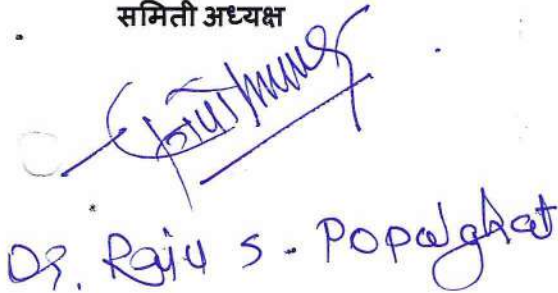 समिती अध्यक्ष
Dr. Raju S. Popalghat